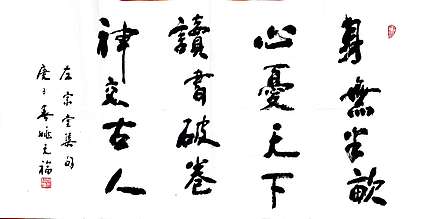 身無半畝
心憂天下
讀書破卷
神交古人
左宗棠集句
庚子春姚元福